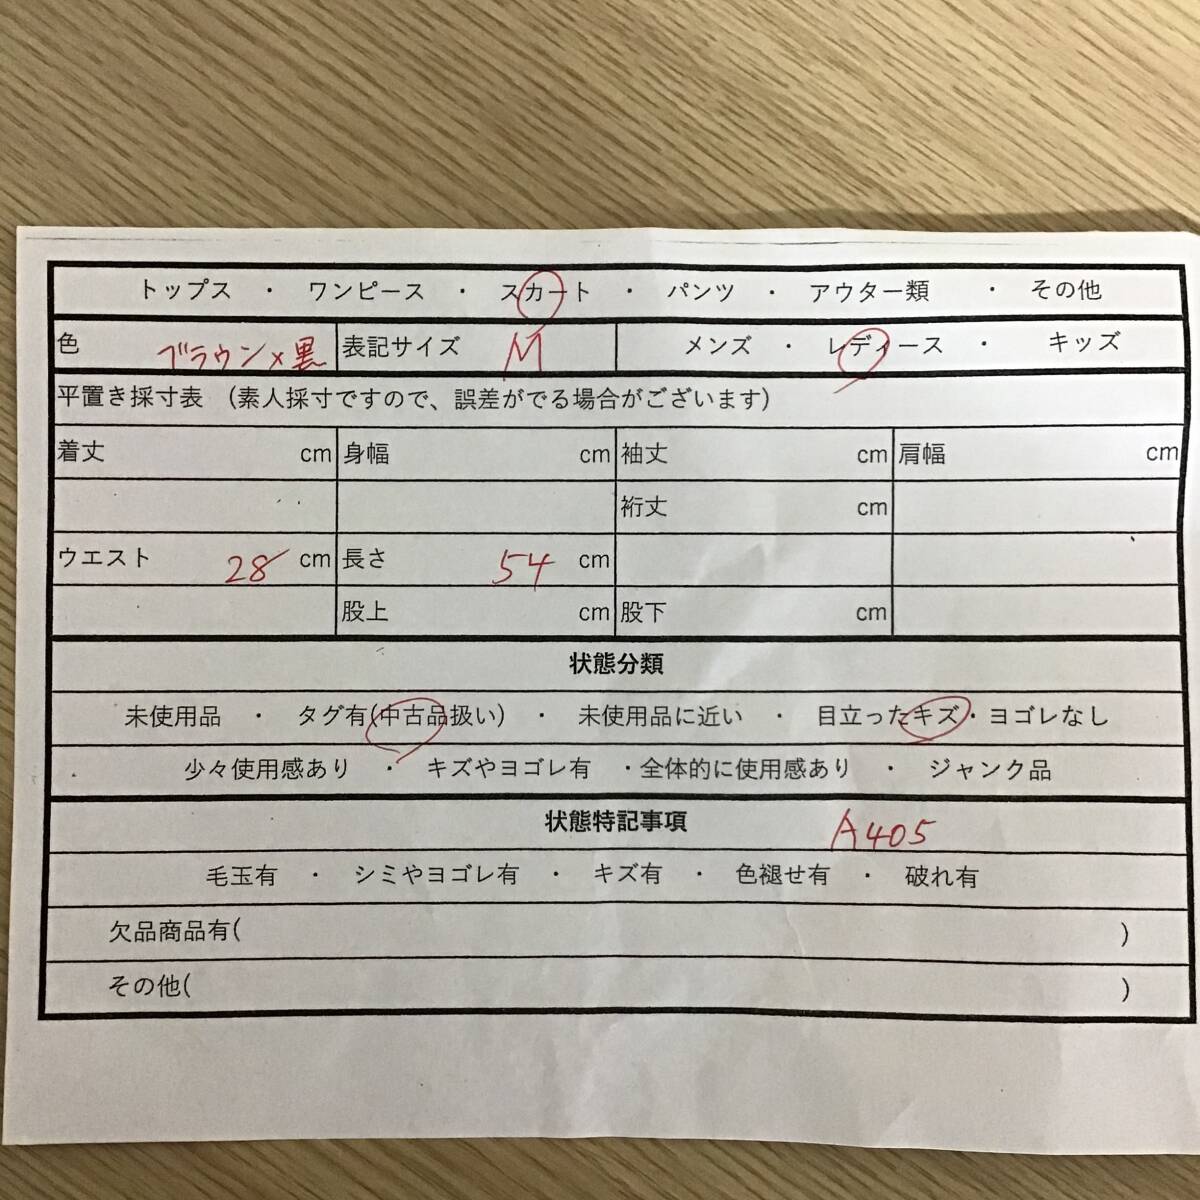 トップス ・ ワンピース ・ スカート ・ パンツ ・ アウター類 ・ その他
色 ブラウン×黒 表記サイズ M メンズ ・ レディース ・ キッズ
平置き採寸表 (素人採寸ですので、誤差がでる場合がございます)
着丈 cm 身幅 cm 袖丈 cm 肩幅 cm
裄丈 cm
ウエスト 28 cm 長さ 54 cm
股上 cm 股下 cm
状態分類
未使用品 ・ タグ有(中古品扱い) ・ 未使用品に近い ・ 目立ったキズ・ヨゴレなし
少々使用感あり ・ キズやヨゴレ有 ・全体的に使用感あり ・ ジャンク品
状態特記事項 A405
毛玉有 ・ シミやヨゴレ有 ・ キズ有 ・ 色褪せ有 ・ 破れ有
欠品商品有( )
その他( )